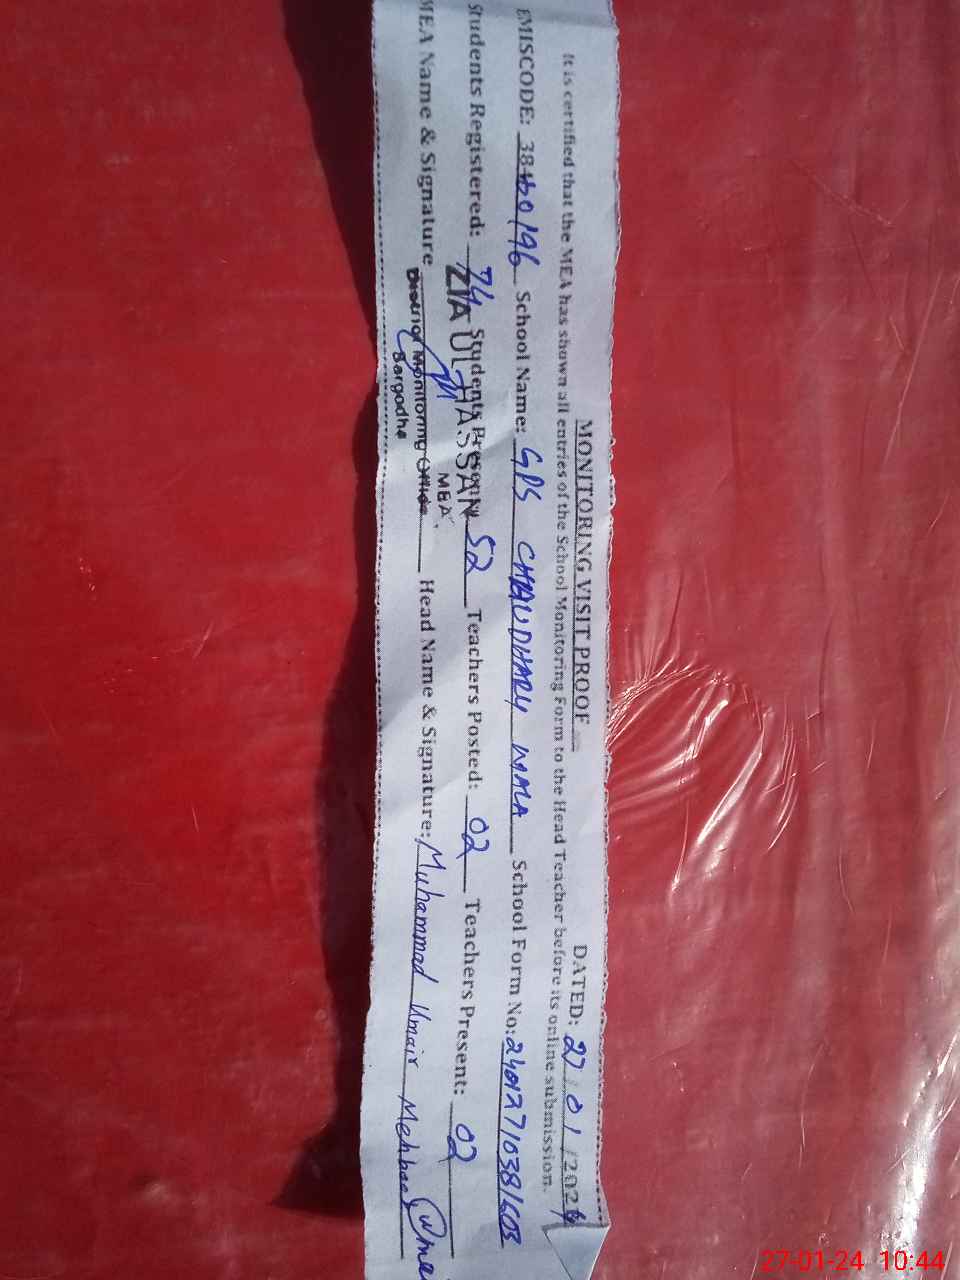 MONITORING VISIT PROOF DATED: 27/01/2024
It is certified that the MEA has shown all entries of the School Monitoring Form to the Head Teacher before its online submission.
EMISCODE: 38460196 School Name: GPS CHAUDHARY MALA School Form No: 24012710381603
Students Registered: 74 Students Present: 52 Teachers Posted: 02 Teachers Present: 02
MEA Name & Signature Head Name & Signature: Muhammad Umair
ZIA UL HASSAN
MEA
Monitoring Office
Sargodha
27-01-24 10:44